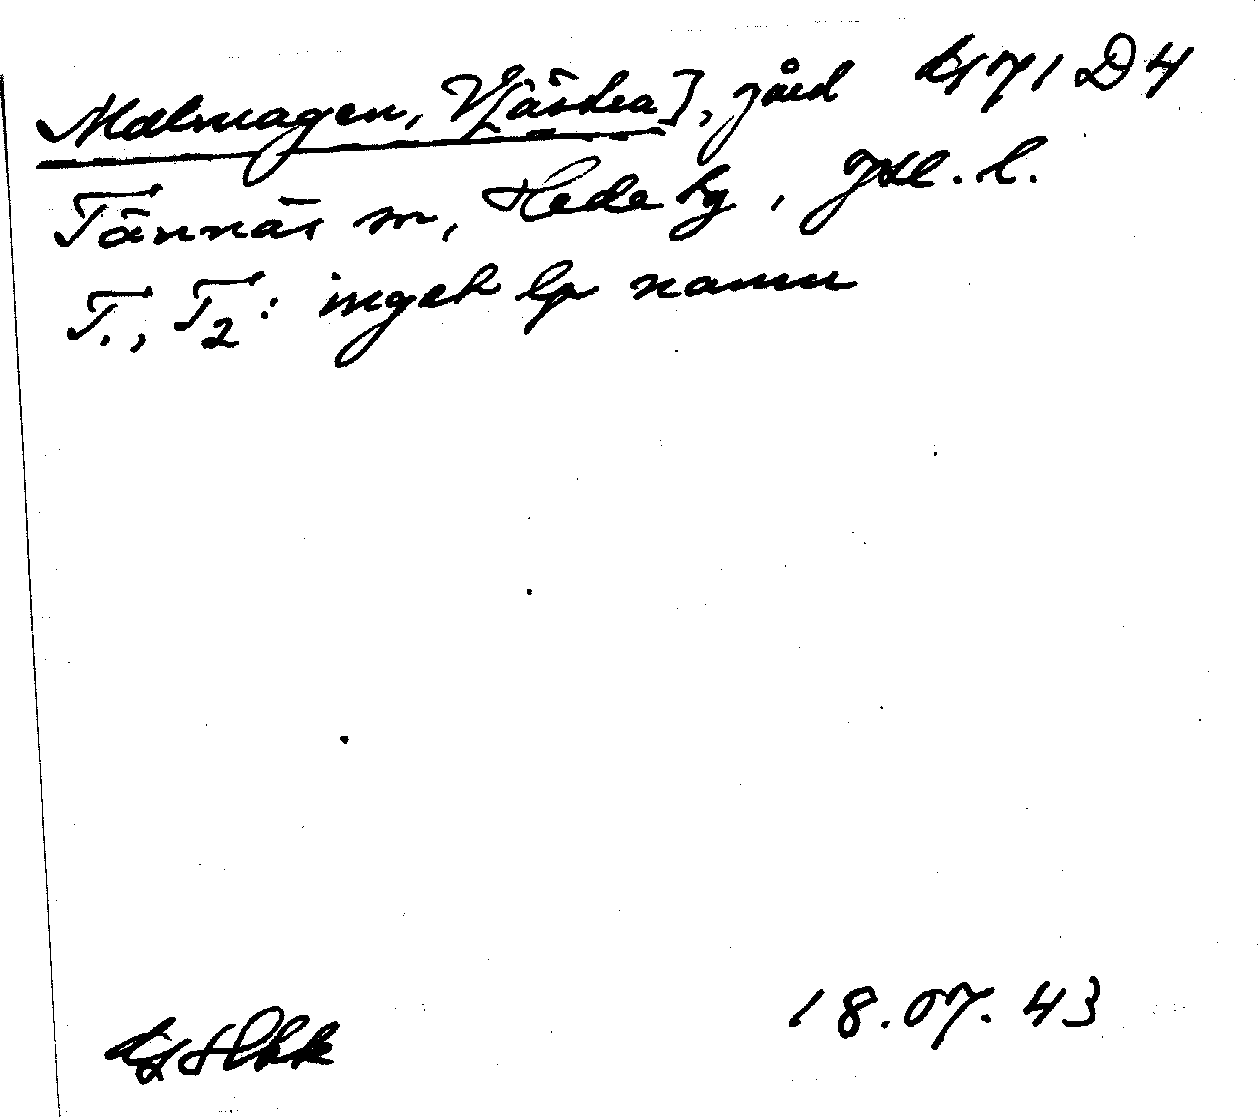 Malmagen, V[ästra], gård 171 D4
Tännäs sn, Hede tg, Jtl. l.
T1, T2: inget lp namn
18.07.43